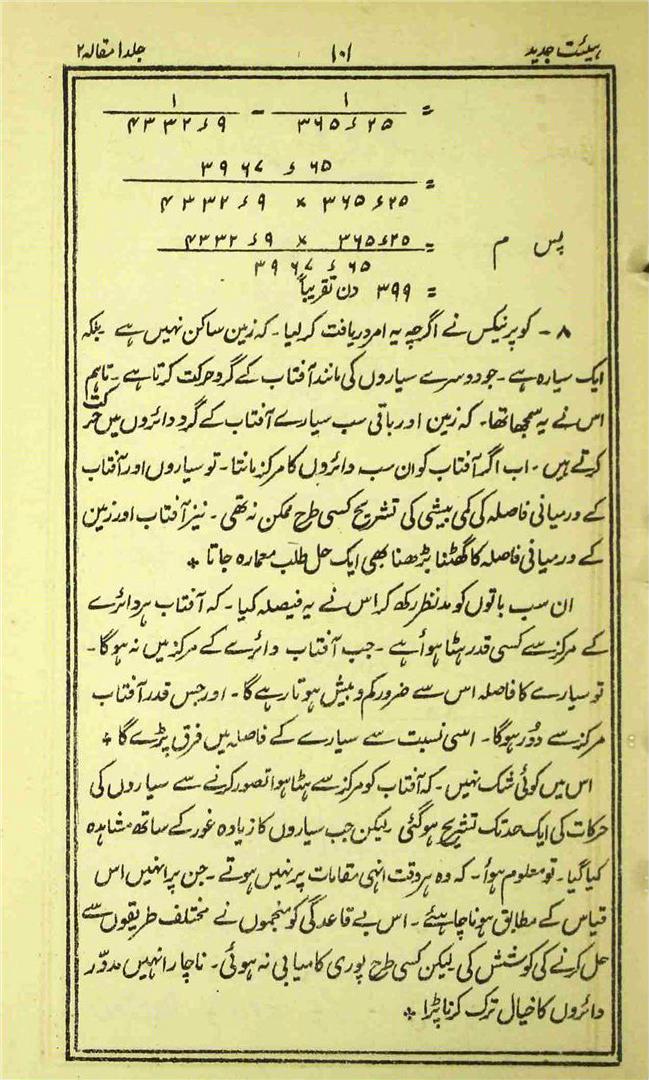 ہیئت جدید ۱۰۱ جلد۱ مقالہ۲
= ۱/۳۶۵ء۲۵ - ۱/۴۳۳۲ء۹
= ۳۹۶۷ء۶۵/۴۳۳۲ء۹ × ۳۶۵ء۲۵
پس م = ۴۳۳۲ء۹ × ۳۶۵ء۲۵/۳۹۶۷ء۶۵
= ۳۹۹ دن تقریباً
۸ - کوپرنیکس نے اگرچہ یہ امر دریافت کر لیا۔ کہ زمین ساکن نہیں ہے بلکہ
ایک سیارہ ہے۔ جو دوسرے سیاروں کی مانند آفتاب کے گرد حرکت کرتا ہے۔ تاہم
اس نے یہ سمجھا تھا۔ کہ زمین اور باقی سب سیارے آفتاب کے گرد دائروں میں حرکت
کرتے ہیں۔ اب اگر آفتاب کو ان سب دائروں کا مرکز مانتا۔ تو سیاروں اور آفتاب
کے درمیانی فاصلہ کی کمی بیشی کی تشریح کسی طرح ممکن نہ تھی۔ نیز آفتاب اور زمین
کے درمیانی فاصلہ کا گھٹنا بڑھنا بھی ایک حل طلب معما رہ جاتا *
ان سب باتوں کو مدنظر رکھ کر اس نے یہ فیصلہ کیا۔ کہ آفتاب ہر دائرے
کے مرکز سے کسی قدر ہٹا ہوأ ہے۔ جب آفتاب دائرے کے مرکز میں نہ ہوگا۔
تو سیارے کا فاصلہ اس سے ضرور کم و بیش ہوتا رہے گا۔ اور جس قدر آفتاب
مرکز سے دُور ہوگا۔ اسی نسبت سے سیارے کے فاصلہ میں فرق پڑے گا *
اس میں کوئی شک نہیں۔ کہ آفتاب کو مرکز سے ہٹا ہوا تصور کرنے سے سیاروں کی
حرکات کی ایک حد تک تشریح ہو گئی لیکن جب سیاروں کا زیادہ غور کے ساتھ مشاہدہ
کیا گیا۔ تو معلوم ہوأ۔ کہ وہ ہر وقت انہی مقامات پر نہیں ہوتے۔ جن پر انہیں اس
قیاس کے مطابق ہونا چاہئے۔ اس بے قاعدگی کو منجموں نے مختلف طریقوں سے
حل کرنے کی کوشش کی لیکن کسی طرح پوری کامیابی نہ ہوئی۔ ناچار انہیں مدوّر
دائروں کا خیال ترک کرنا پڑا *